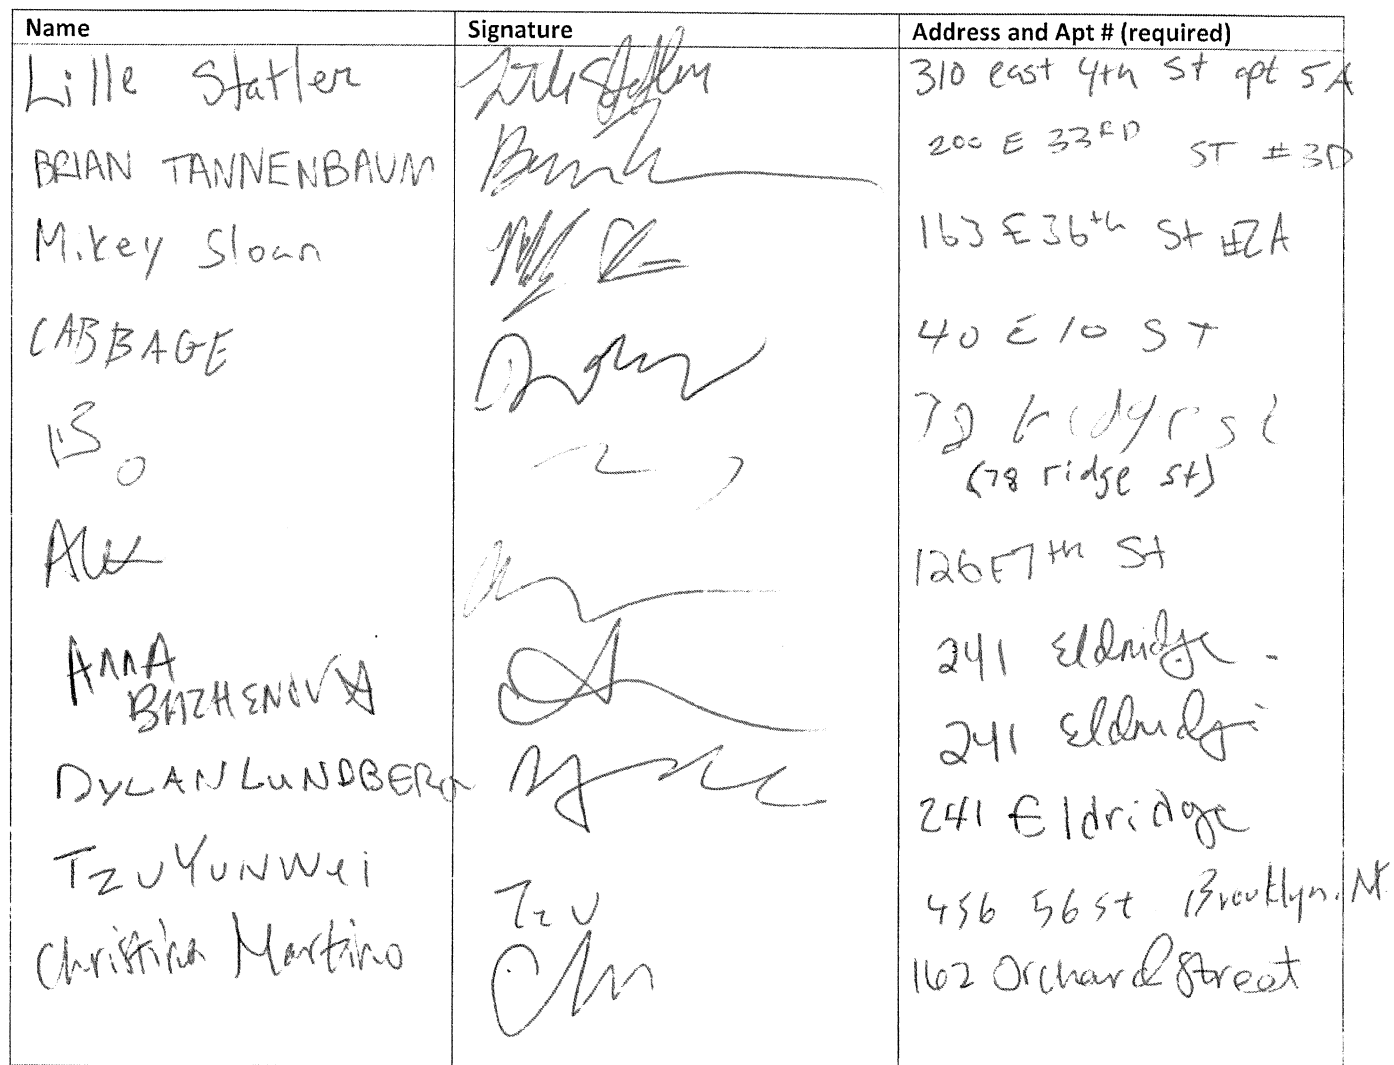 Name Signature Address and Apt # (required)
Lille Statler Lille Statler 310 east 4th St apt 5A
BRIAN TANNENBAUM 200 E 33RD ST #3D
Mikey Sloan 163 E 36th St #2A
CABBAGE 40 E 10 ST
Bo 78
(78 ridge st)
Alex 126 E 7th St
AnnA 241 Eldridge
BAZHENOVA
241 Eldridge
DYLAN LUNDBERG 241 Eldridge
TZU YUN WEi Tzu 456 56 st Brooklyn. NY.
Christina Martino 162 Orchard Street